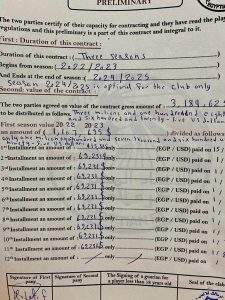 PRELIMINARY
The two parties certify of their capacity for contracting and they have read the play
regulations and this preliminary is a part of this contract and integral to it.
First : Duration of this contract :
Duration of this contract : Three seasons
Begins from season : 2022 / 2023
And Ends at the end of season : 2024 / 2025
Season 2024/2025 is optional for the club only
Second: value of the contract
The two parties agreed on value of the contract gross amount of : 3,189,62
to be distributed as follows: Three million and one hundred
First season value 20 22
an amount of ( ) divided as follows
1st Installment an amount of only (EGP / USD) paid on 15 /
2nd Installment an amount of : 69,231 $ only (EGP / USD) paid on 1 /
3rd Installment an amount of : 69,231 $ only (EGP / USD) paid on 1 /
4th Installment an amount of : 69,231 $ only (EGP / USD) paid on 1 /
5th Installment an amount of : 69,231 $ only (EGP / USD) paid on 1 /
6th Installment an amount of : 69,231 $ only (EGP / USD) paid on 1 /
7th Installment an amount of : 69,231 $ only (EGP / USD) paid on 1 /
8th Installment an amount of : 69,231 $ only (EGP / USD) paid on 1 /
9th Installment an amount of : 69,231 $ only (EGP / USD) paid on 1 /
10th Installment an amount of : 69,231 $ only (EGP / USD) paid on 1 /
11th Installment an amount of : only (EGP / USD) paid on 1 /
12th Installment an amount of : only (EGP / USD) paid on /
Signature of First party
Signature of Second party
The Signing of a guardian for a player less than 18 years old
Seal of the club